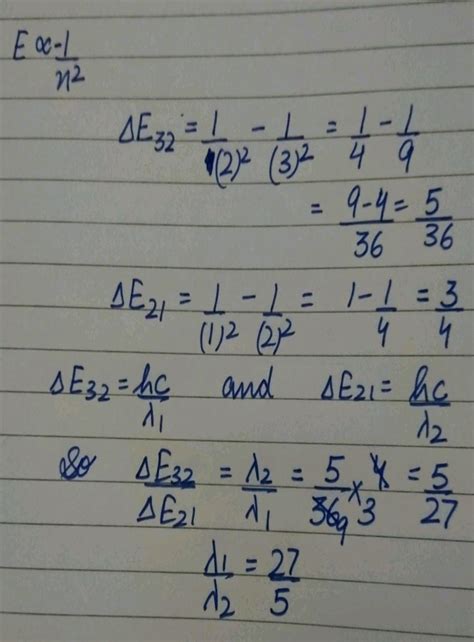 E ∝ -1/n²
ΔE₃₂ = 1/(2)² - 1/(3)² = 1/4 - 1/9
= 9-4/36 = 5/36
ΔE₂₁ = 1/(1)² - 1/(2)² = 1 - 1/4 = 3/4
ΔE₃₂ = hc/λ₁ and ΔE₂₁ = hc/λ₂
So ΔE₃₂/ΔE₂₁ = λ₂/λ₁ = 5/36 9 × 4/3 = 5/27
λ₁/λ₂ = 27/5